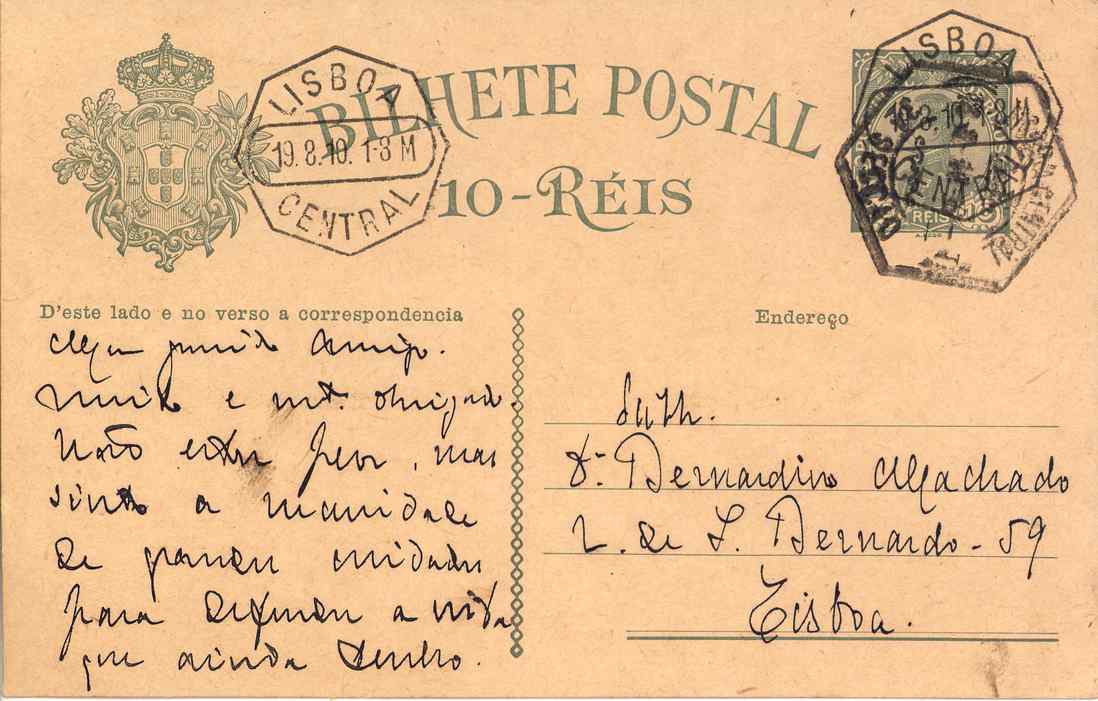 BILHETE POSTAL
10-RÉIS
LISBOA
19.8.10. 1-8 M
CENTRAL
LISBOA
CENTRAL
REIS
D'este lado e no verso a correspondencia
Meu querido Amigo.
Muito e mt. obrigado.
Não estou peor, mas
sinto a
de grandes cuidados
para defender a vida
que ainda tenho.
Endereço
Dr. Bernardino Machado
L. de S. Bernardo - 59
Lisboa.